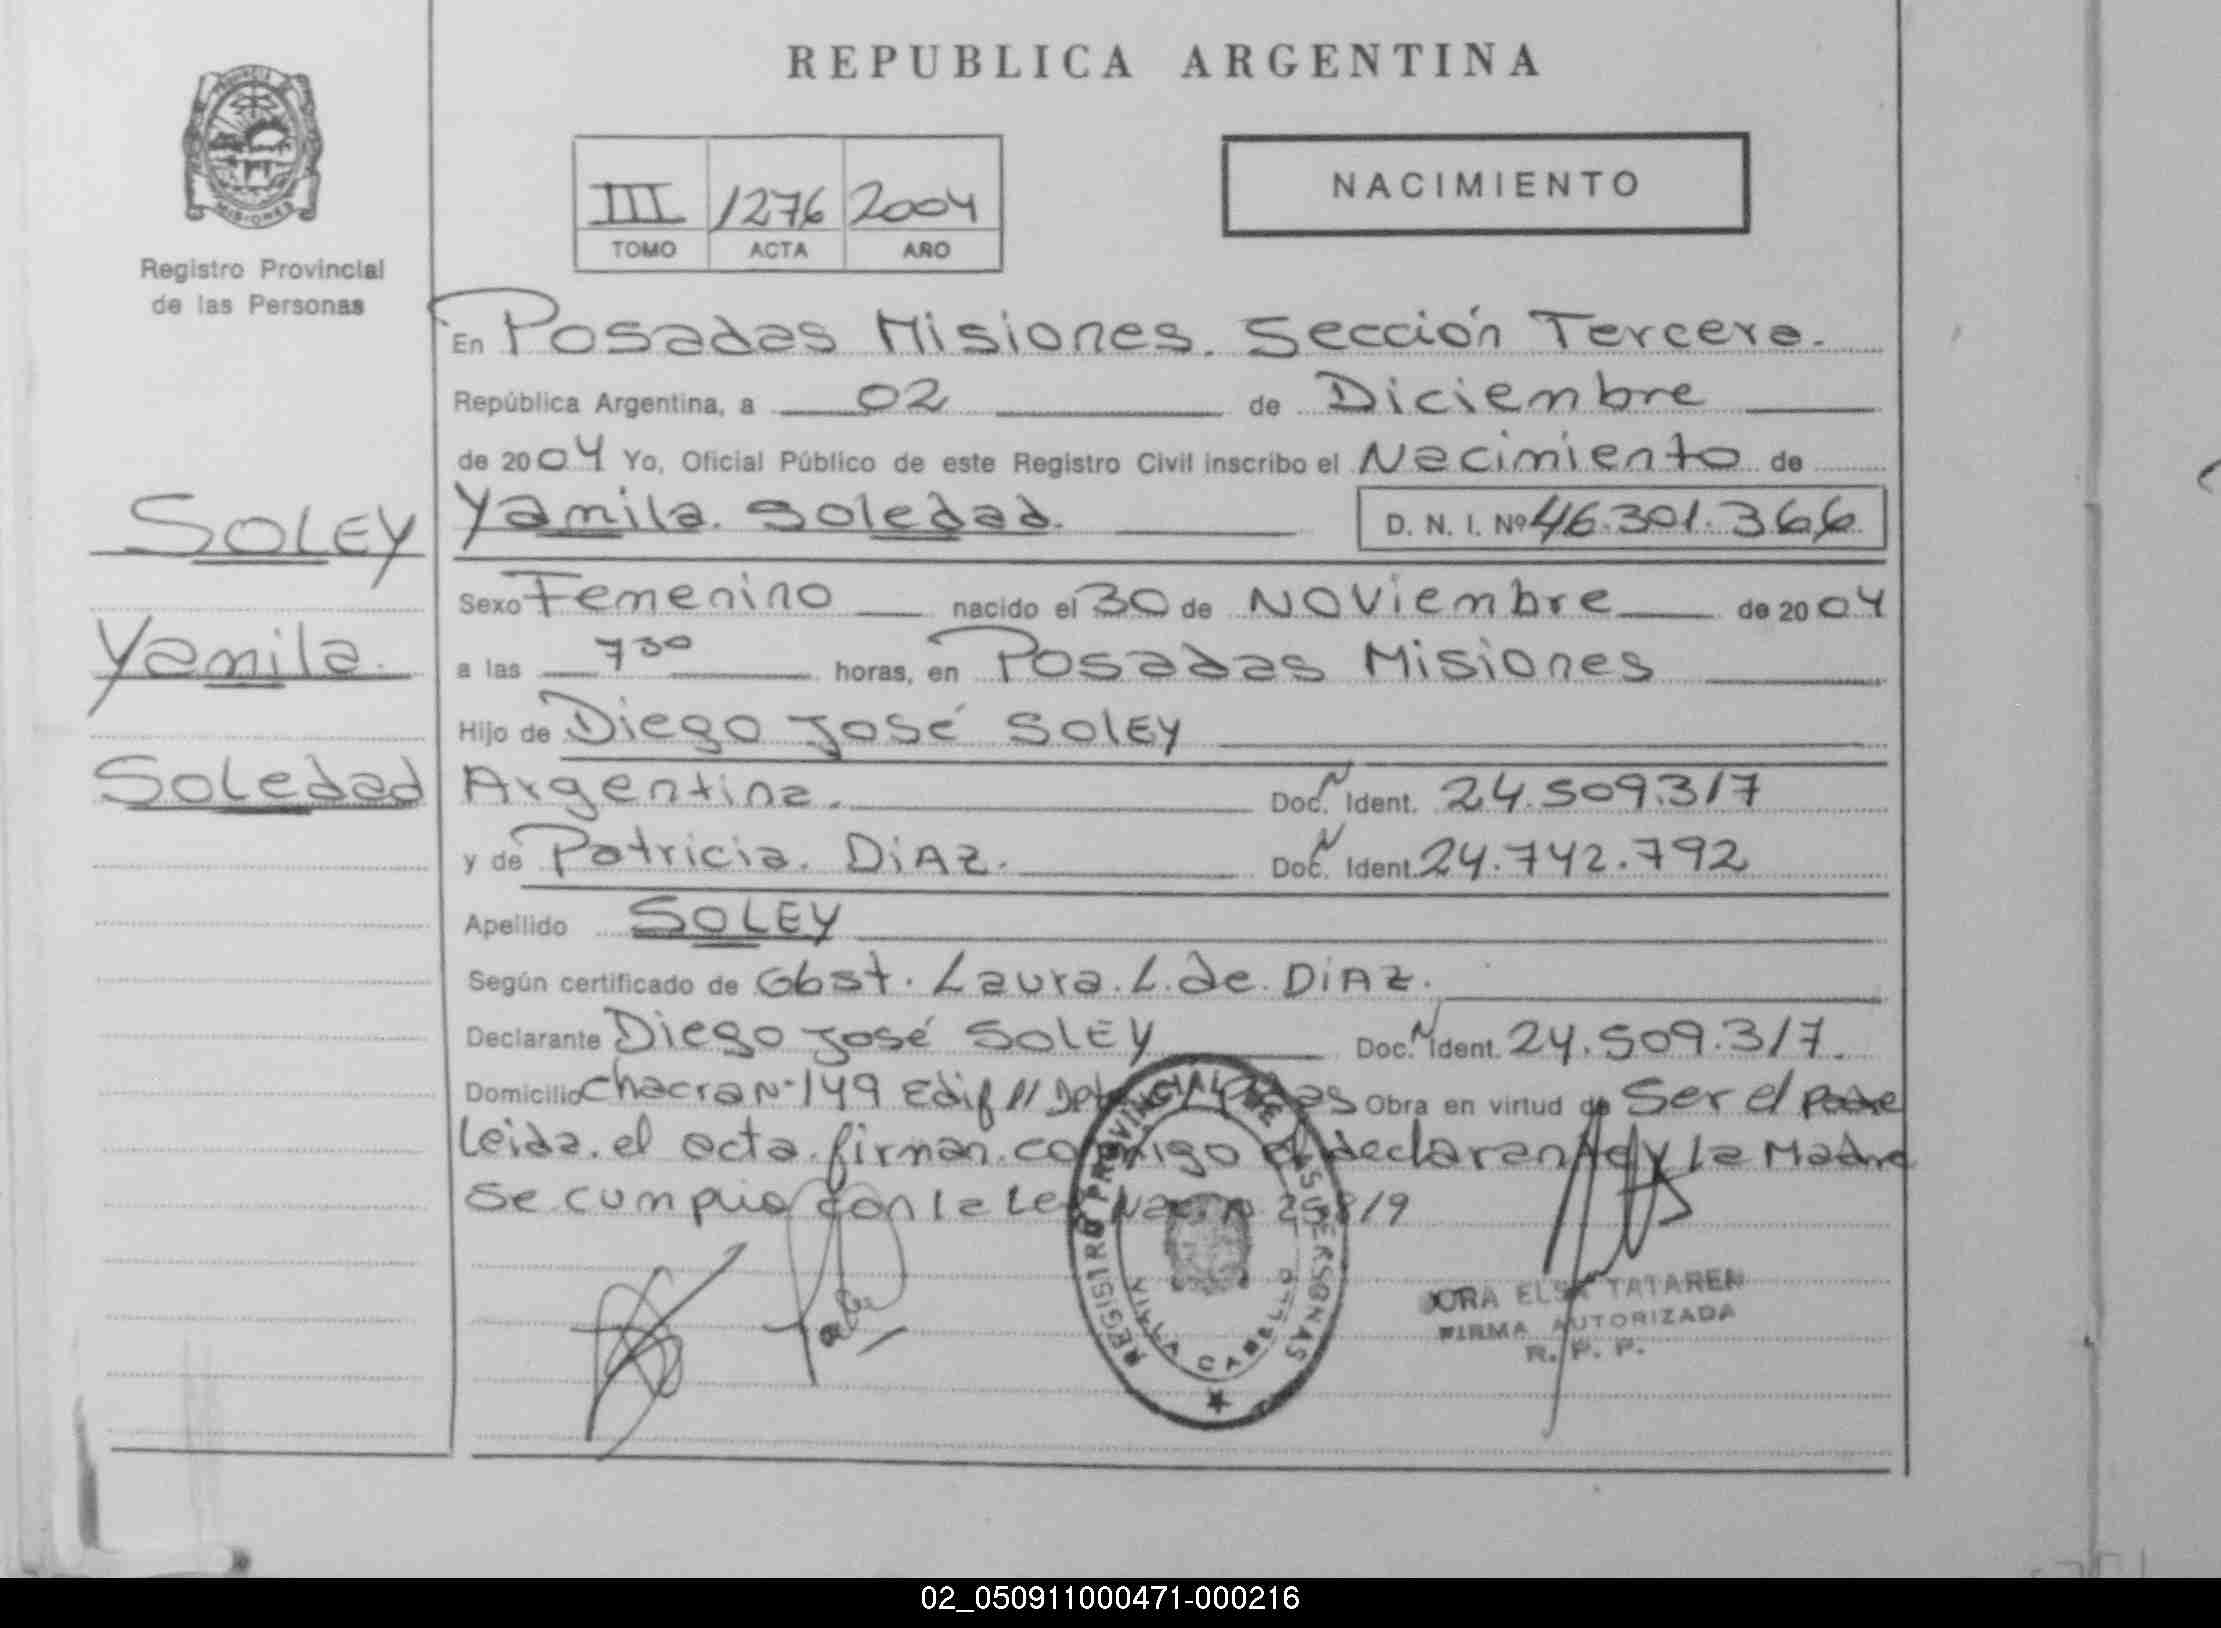 REPUBLICA ARGENTINA
PROVINCIA
MISIONES
Registro Provincial
de las Personas
III 1276 2004
TOMO ACTA AÑO
NACIMIENTO
En Posadas Misiones. Sección Tercera.
República Argentina, a 02 de Diciembre
de 2004 Yo, Oficial Público de este Registro Civil inscribo el Nacimiento de
SOLEY
Yamila
Soledad
Yamila Soledad. D. N. I. Nº 46.301.366
Sexo Femenino nacido el 30 de Noviembre de 2004
a las 7 30 horas, en Posadas Misiones
Hijo de Diego José Soley
Argentina. Doc. N Ident. 24.509.317
y de Patricia. Diaz. Doc. N Ident. 24.742.792
Apellido SOLEY
Según certificado de Obst. Laura. L. de. Diaz.
Declarante Diego José Soley Doc. N Ident. 24.509.317.
Domicilio Chacra Nº 149 Edif 11 Obra en virtud de Ser el Padre
Leida. el acta. firman. conmigo el declarante y la Madre
Se cumplio con la Ley 25819
REGISTRO PROVINCIAL DE LAS PERSONAS
VILLA CABELLO
DORA ELSA TATAREN
FIRMA AUTORIZADA
R. P. P.
02_050911000471-000216